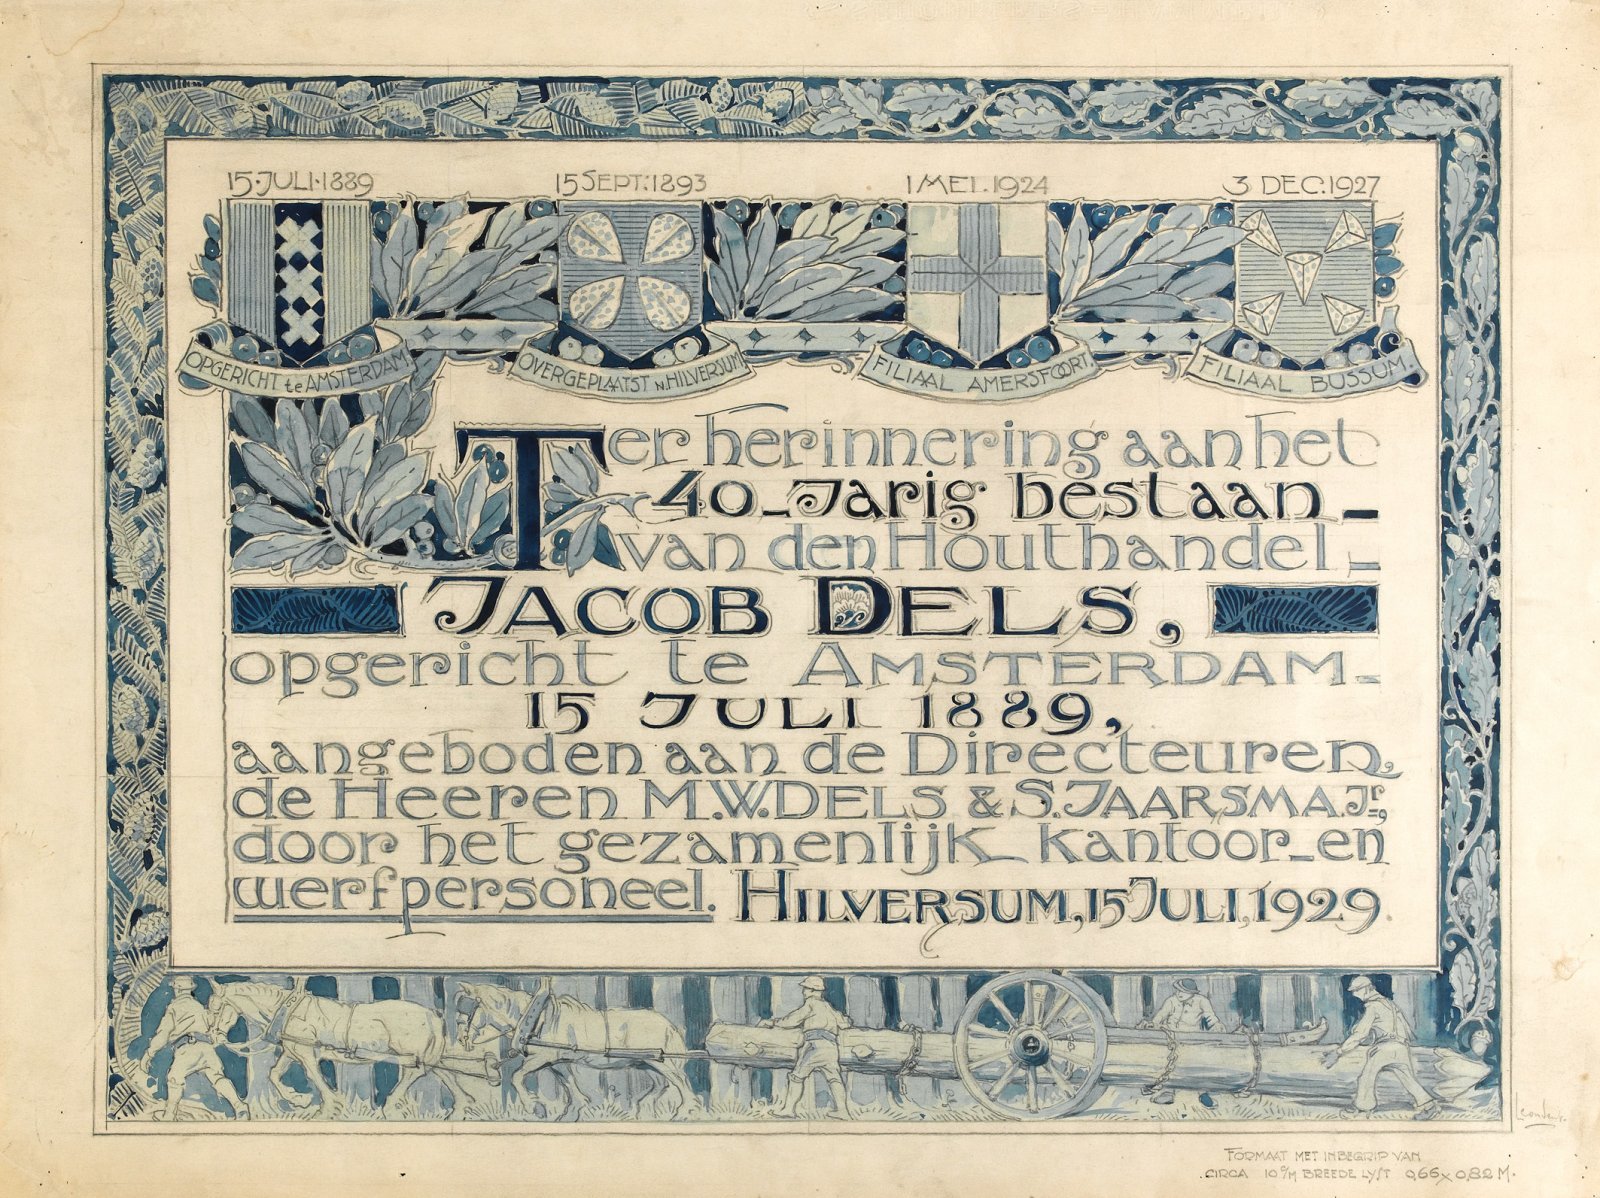 15·JULI·1889
15 SEPT: 1893
1 MEI. 1924
3 DEC. 1927
OPGERICHT te AMSTERDAM
OVERGEPLAATST N. HILVERSUM
FILIAAL AMERSFOORT.
FILIAAL BUSSUM.
Ter herinnering aan het
40-Jarig bestaan
van den Houthandel
JACOB DELS,
opgericht te AMSTERDAM
15 JULI 1889,
aangeboden aan de Directeuren,
de Heeren M.W. DELS & S. JAARSMA. Jr,
door het gezamenlijk kantoor- en
werfpersoneel. HILVERSUM, 15 JULI, 1929.
FORMAAT MET INBEGRIP VAN
CIRCA 10 c/M BREEDE LYST 0,66 x 0,82 M.